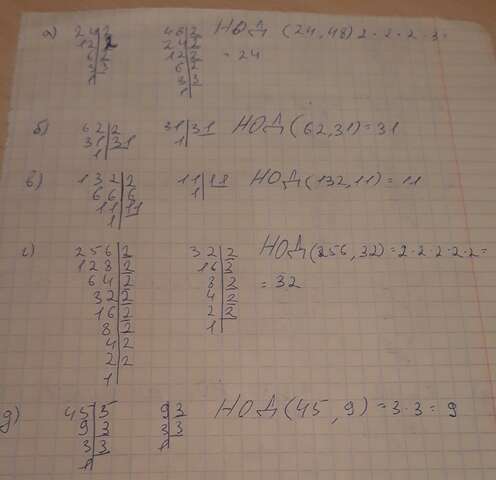 а) 24|2 48|2 НОД (24,48) 2·2·2·3=
12|2 24|2 = 24
6|2 12|2
3|3 6|2
1 3|3
1
б) 62|2 31|31 НОД(62,31)=31
31|31 1
1
в) 132|2 11|11 НОД(132,11)=11
66|6 1
11|11
1
г) 256|2 32|2 НОД(256,32)=2·2·2·2·2=
128|2 16|2 = 32
64|2 8|2
32|2 4|2
16|2 2|2
8|2 1
4|2
2|2
1
д) 45|5 9|3 НОД(45,9)=3·3=9
9|3 3|3
3|3 1
1